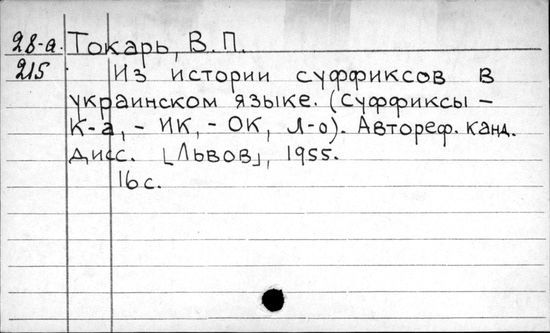 28-а. Токарь, В.П.
215 Из истории суффиксов в
украинском языке. (Суффиксы –
К-а, – ИК, – ОК, Л-о). Автореф. канд.
дисс. [Львов], 1955.
16 с.